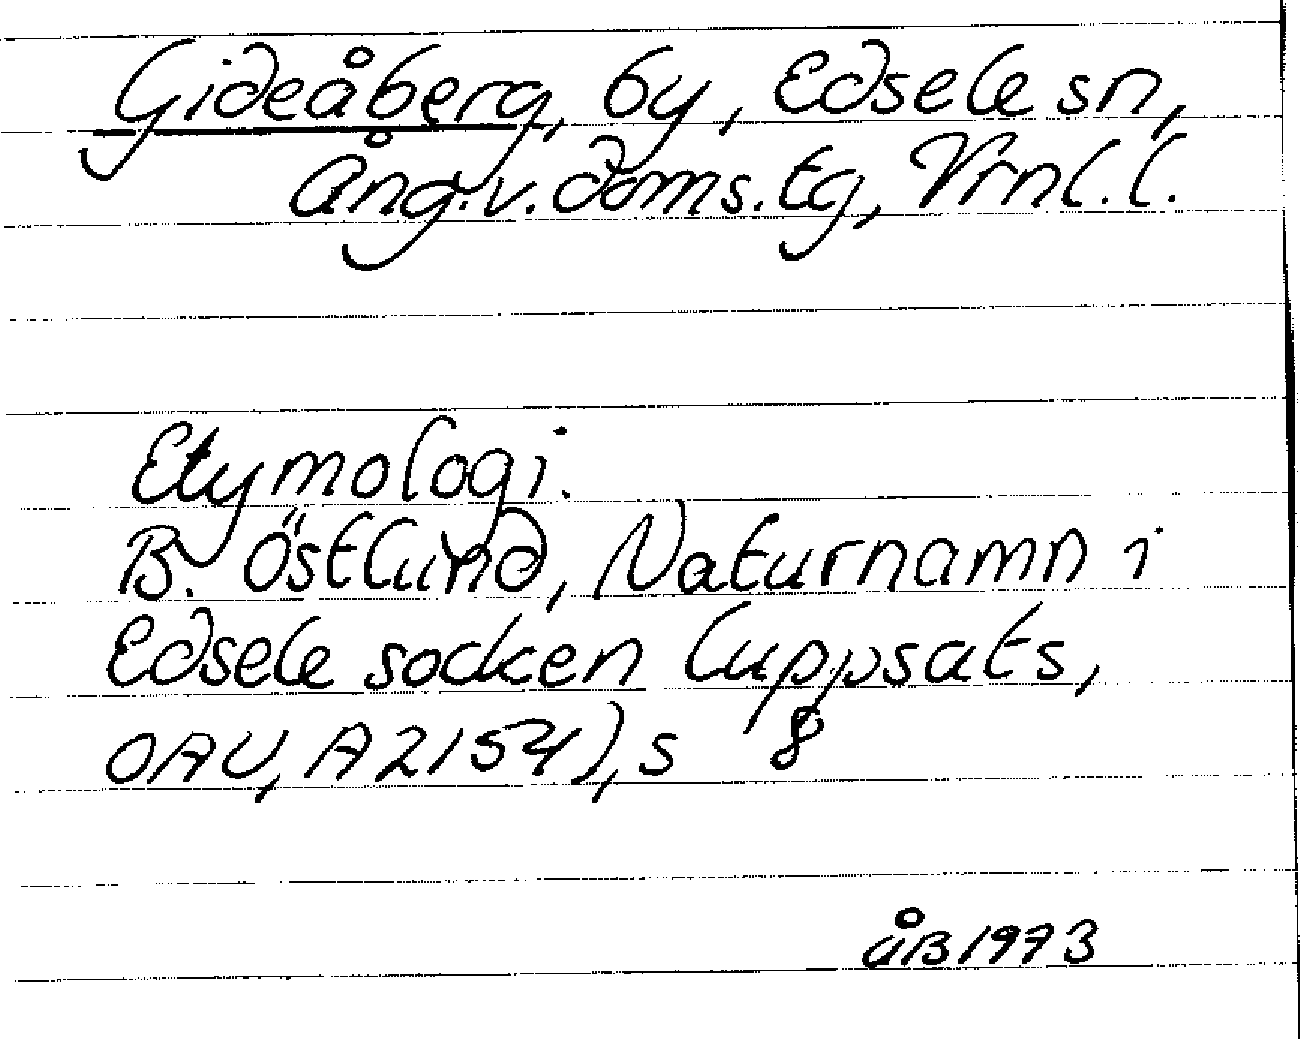 Gideåberg, by, Edsele sn,
Ång.v.doms.tg, Vrnl.l.
Etymologi.
B. Östlund, Naturnamn i
Edsele socken (uppsats,
OAU, A2154), s 8
åB 1973